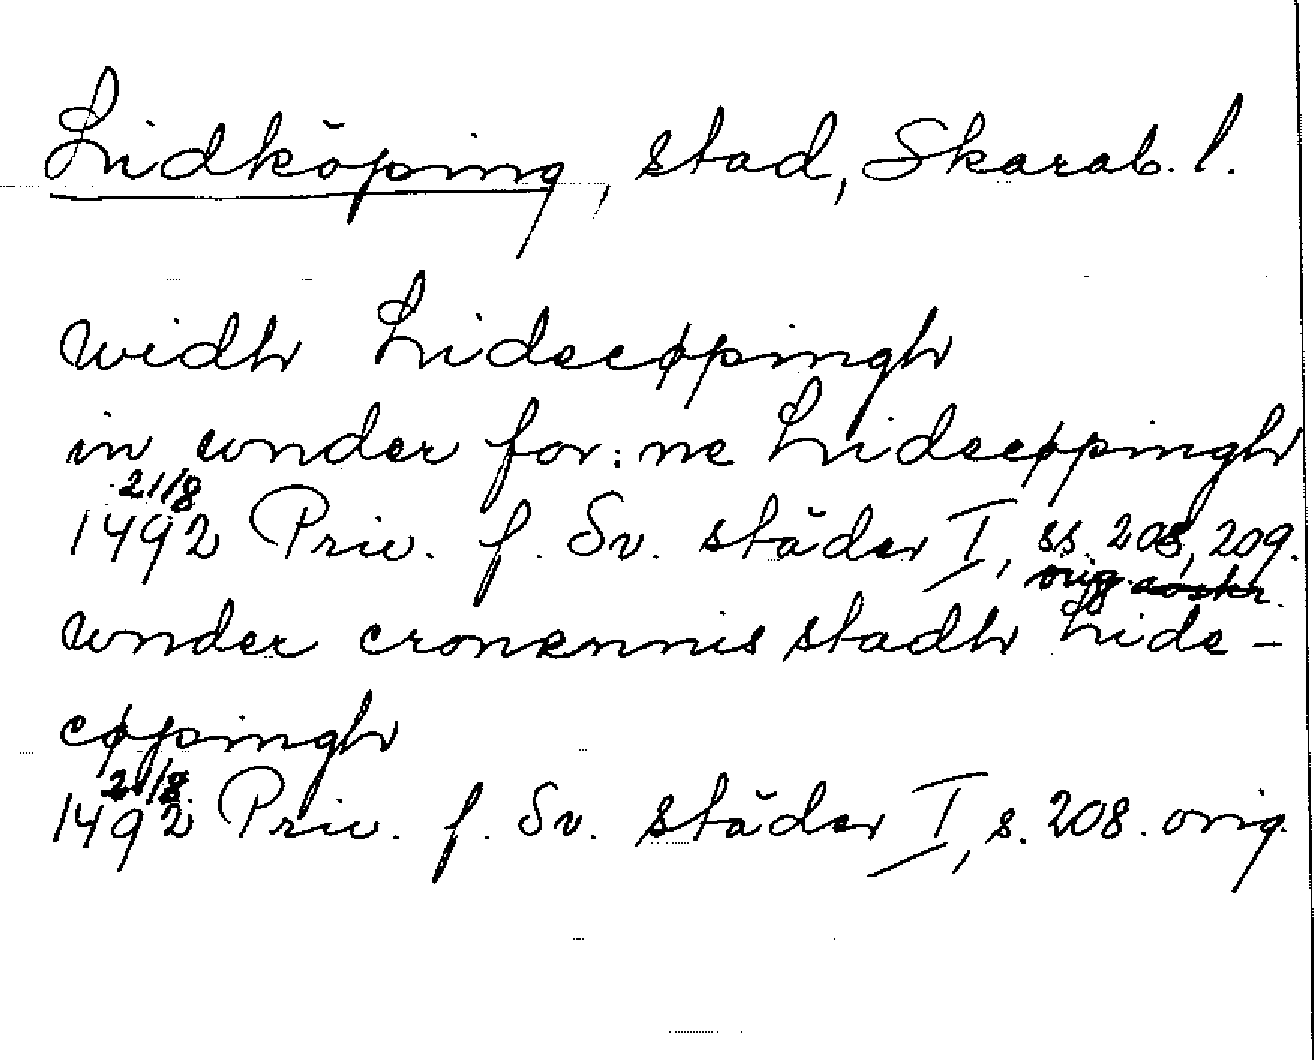 Lidköping, stad, Skarab. l.
widh Lidecøpingh
in wnder for:ne Lidecøpingh
21/8
1492 Priv. f. Sv. städer I, ss. 208, 209.
orig.
wnder cronennis stadh Lide-
cøpingh
21/8
1492 Priv. f. Sv. städer I, s. 208. orig.